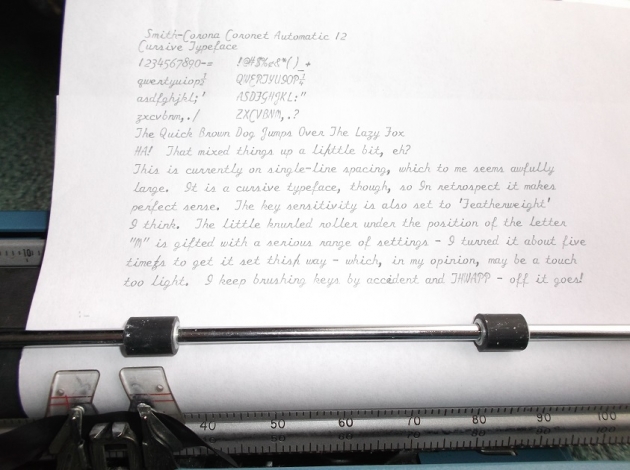 Smith-Corona Coronet Automatic 12
Cursive Typeface
1234567890-= !@#$%&*()_+
qwertyuiop½ QWERTYUIOP¼
asdfghjkl;' ASDFGHJKL:"
zxcvbnm,./ ZXCVBNM,.?
The Quick Brown Dog Jumps Over The Lazy Fox
HA! That mixed things up a little bit, eh?
This is currently on single-line spacing, which to me seems awfully
large. It is a cursive typeface, though, so In retrospect it makes
perfect sense. The key sensitivity is also set to 'Featherweight'
I think. The little knurled roller under the position of the letter
"M" is gifted with a serious range of settings - I turned it about five
times to get it set this way - which, in my opinion, may be a touch
too light. I keep brushing keys by accident and THWAPP - off it goes!
10
40 50 60 70 80 90 100